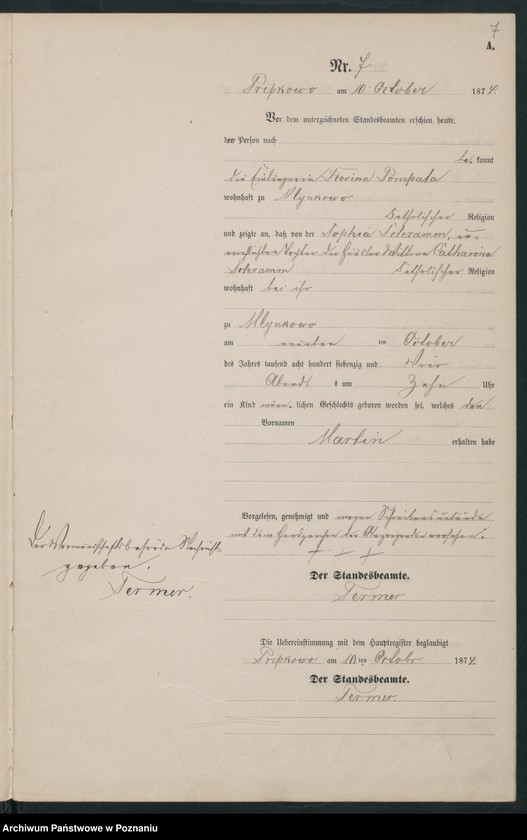 7
A.
Nr. 7
Pripkowo am 10 October 1874.
Vor dem unterzeichneten Standesbeamten erschien heute,
der Person nach
bekannt
die Einliegerin Pompata
wohnhaft zu Mlynkowo
Katholischer Religion
und zeigte an, daß von der Sophia Schramm, un-
verehlichten Tochter der Häusler Wittwe Catharina
Schramm Katholischer Religion
wohnhaft bei ihr
zu Mlynkowo
am neunten ten October
des Jahres tausend acht hundert siebenzig und Vier
Abends um Zehn Uhr
ein Kind männlichen Geschlechts geboren worden sei, welches den
Vornamen
Martin erhalten habe
Vorgelesen, genehmigt und wegen Schreibensunkunde
mit dem Handzeichen der Anzeigenden versehen.
+ + +
Der Standesbeamte.
Termer
Der Vormundschaftsbehörde Nachricht
gegeben.
Termer.
Die Uebereinstimmung mit dem Hauptregister beglaubigt
Pripkowo am 10 ten Octobr 1874.
Der Standesbeamte.
Termer.
Archiwum Państwowe w Poznaniu